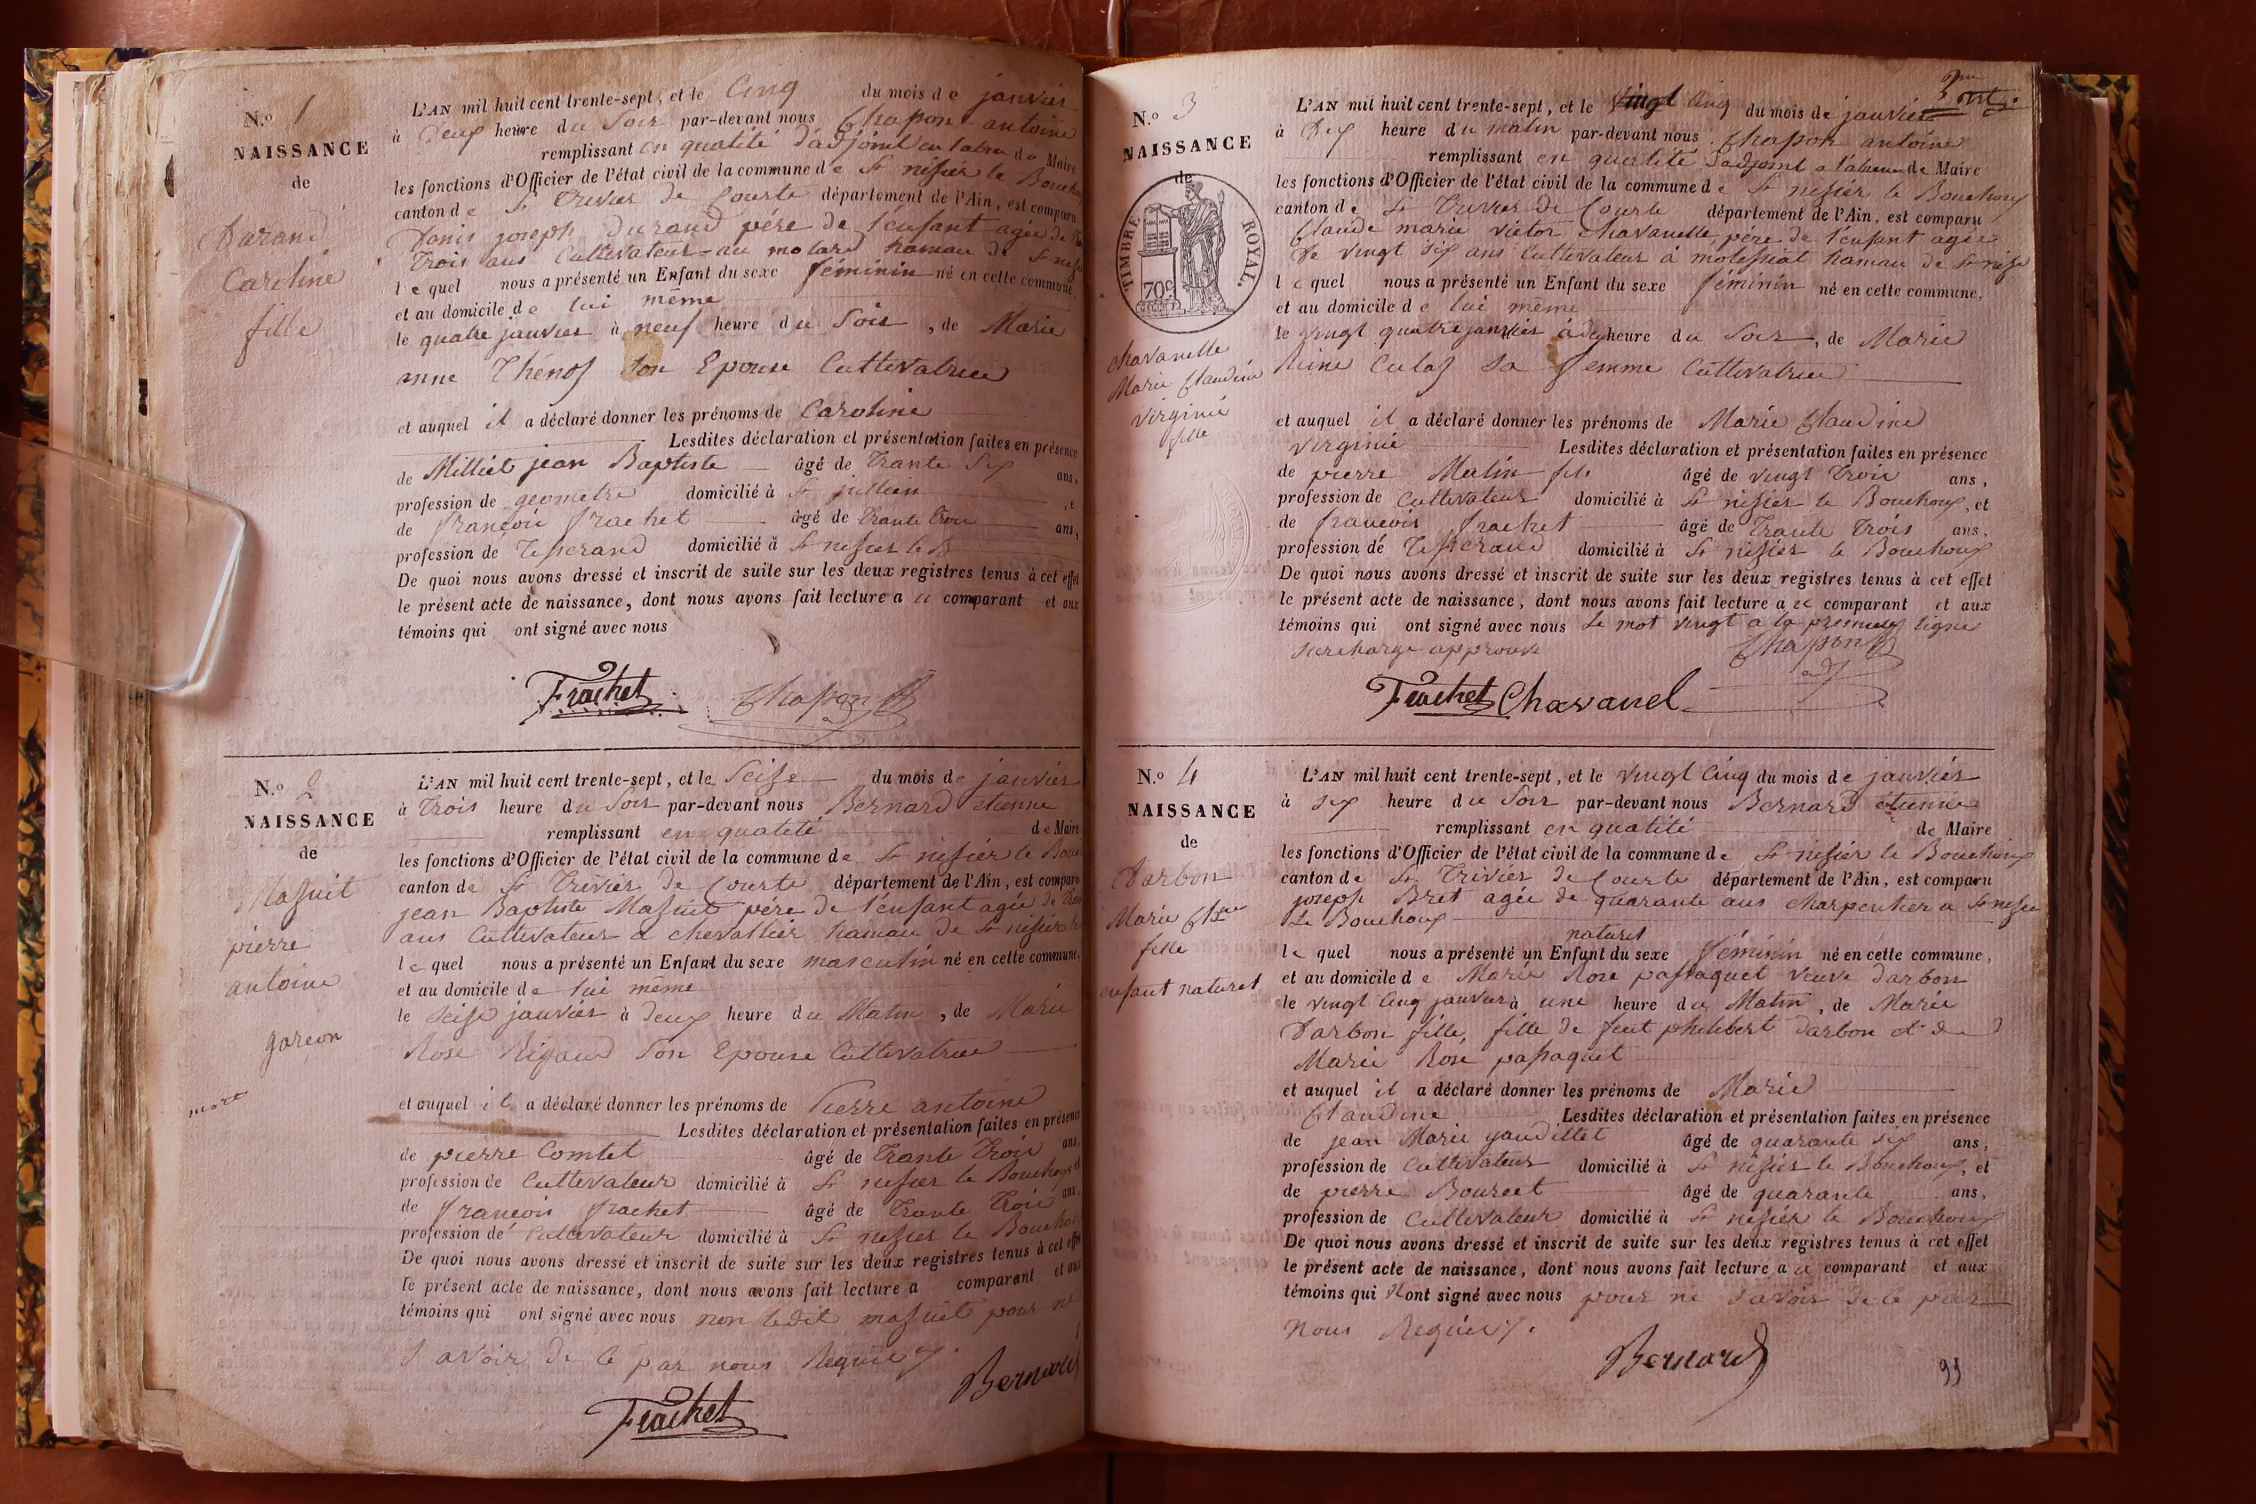 N.º 1
NAISSANCE
de
Durand
Caroline
fille
L'AN mil huit cent trente-sept, et le Cinq du mois de janvier
à Deux heure du Soir par-devant nous Chapon antoine
remplissant en qualité d'adjoint en l'absence de Maire
les fonctions d'Officier de l'état civil de la commune de St nisier le Bouchoux
canton de St Trivier de Courte département de l'Ain, est comparu
Denis joseph Durand pére de l'enfant agée de
Trois ans Cultivateur au molard hamau de St nisier
lequel nous a présenté un Enfant du sexe féminin né en cette commune,
et au domicile de lui même
le quatre janvier à neuf heure du Soir, de Marie
anne Thénoz Son Epouse Cultivatrice
et auquel il a déclaré donner les prénoms de Caroline
Lesdites déclaration et présentation faites en présence
de Milliet jean Baptiste âgé de Trante Six ans,
profession de géometre domicilié à St jullien, et
de françois frachet âgé de Trante Trois ans,
profession de Tisserand domicilié à St nisier le B
De quoi nous avons dressé et inscrit de suite sur les deux registres tenus à cet effet
le présent acte de naissance, dont nous avons fait lecture a ce comparant et aux
témoins qui ont signé avec nous
Frachet Chapon
N.º 2
NAISSANCE
de
Mazuit
pierre
antoine
garcon
mort
L'AN mil huit cent trente-sept, et le Seize du mois de janvier
à Trois heure du Soir par-devant nous Bernard etienne
remplissant en qualité de Maire
les fonctions d'Officier de l'état civil de la commune de St nisier le Bouc
canton de St Trivier de Courte département de l'Ain, est comparu
jean Baptiste Mazuit pére de l'enfant agée de
ans Cultivateur a chevallier hamau de St nisier le
lequel nous a présenté un Enfant du sexe masculin né en cette commune,
et au domicile de lui même
le Seize janvier à deux heure du Matin, de Marie
Rose Rigaud Son Epouse Cultivatrice
et auquel il a déclaré donner les prénoms de Pierre antoine
Lesdites déclaration et présentation faites en présence
de pierre Comtet âgé de Trante Trois ans,
profession de Cultivateur domicilié à St nisier le Bouchoux et
de françois frachet âgé de Trante Trois ans,
profession de Cultivateur domicilié à St nisier le Bouchou
De quoi nous avons dressé et inscrit de suite sur les deux registres tenus à cet effet
le présent acte de naissance, dont nous avons fait lecture a comparant et aux
témoins qui ont signé avec nous non ledit mazuit pour ne
Savoir de ce par nous Requis
Frachet Bernard
N.º 3
NAISSANCE
de
TIMBRE ROYAL.
70 c
chavanelle
Marie Claudine
virginie
fille
L'AN mil huit cent trente-sept, et le vingt Cinq du mois de janvier
à Dix heure du matin par-devant nous Chapon antoine
remplissant en qualité d'adjoint a l'absence de Maire
les fonctions d'Officier de l'état civil de la commune de St nisier le Bouchoux
canton de St Trivier de Courte département de l'Ain, est comparu
Claude marie victor Chavanelle, pére de l'enfant agée
De vingt Six ans Cultivateur à molissiat hamau de St nisier
lequel nous a présenté un Enfant du sexe féminin né en cette commune,
et au domicile de lui même
le vingt quatre janvier à dix heure du Soir, de Marie
Reine Culas Sa femme Cultivatrice
et auquel il a déclaré donner les prénoms de Marie Claudine
virginie Lesdites déclaration et présentation faites en présence
de pierre Malin fils âgé de vingt Trois ans,
profession de Cultivateur domicilié à St nisier le Bouchoux, et
de françois frachet âgé de Trante Trois ans,
profession de Tisserand domicilié à St nisier le Bouchoux
De quoi nous avons dressé et inscrit de suite sur les deux registres tenus à cet effet
le présent acte de naissance, dont nous avons fait lecture a ce comparant et aux
témoins qui ont signé avec nous Le mot vingt a la premiere ligne
Surcharge approuvé Chapon
Frachet Chavanel
N.º 4
NAISSANCE
de
Darbon
Marie Cl.ne
fille
enfant naturel
L'AN mil huit cent trente-sept, et le vingt Cinq du mois de janvier
à Six heure du Soir par-devant nous Bernard etienne
remplissant en qualité de Maire
les fonctions d'Officier de l'état civil de la commune de St nisier le Bouchoux
canton de St Trivier de Courte département de l'Ain, est comparu
joseph Bret agée de quarante ans charpentier a St nisier
Le Bouchoux
naturel
lequel nous a présenté un Enfant du sexe féminin né en cette commune,
et au domicile de Marie Rose passaquet veuve darbon
le vingt Cinq janvier à une heure du Matin, de Marie
Darbon fille, fille de feut philibert darbon et de
Marie Rose passaquet
et auquel il a déclaré donner les prénoms de Marie
Claudine Lesdites déclaration et présentation faites en présence
de jean Marie yaudillet âgé de quarante Six ans,
profession de Cultivateur domicilié à St nisier le Bouchoux, et
de pierre Bourcet âgé de quarante ans,
profession de Cultivateur domicilié à St nisier le Bouchoux
De quoi nous avons dressé et inscrit de suite sur les deux registres tenus à cet effet
le présent acte de naissance, dont nous avons fait lecture a ce comparant et aux
témoins qui n'ont signé avec nous pour ne Savoir de ce par
Nous Requis.
Bernard